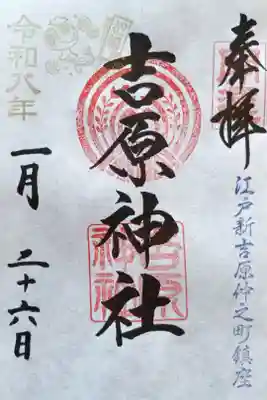 奉拝
江戸新吉原仲之町鎮座
吉原神社
令和八年
一月 二十六日